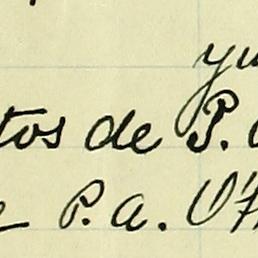 yu
tos de P.
P. a. O'